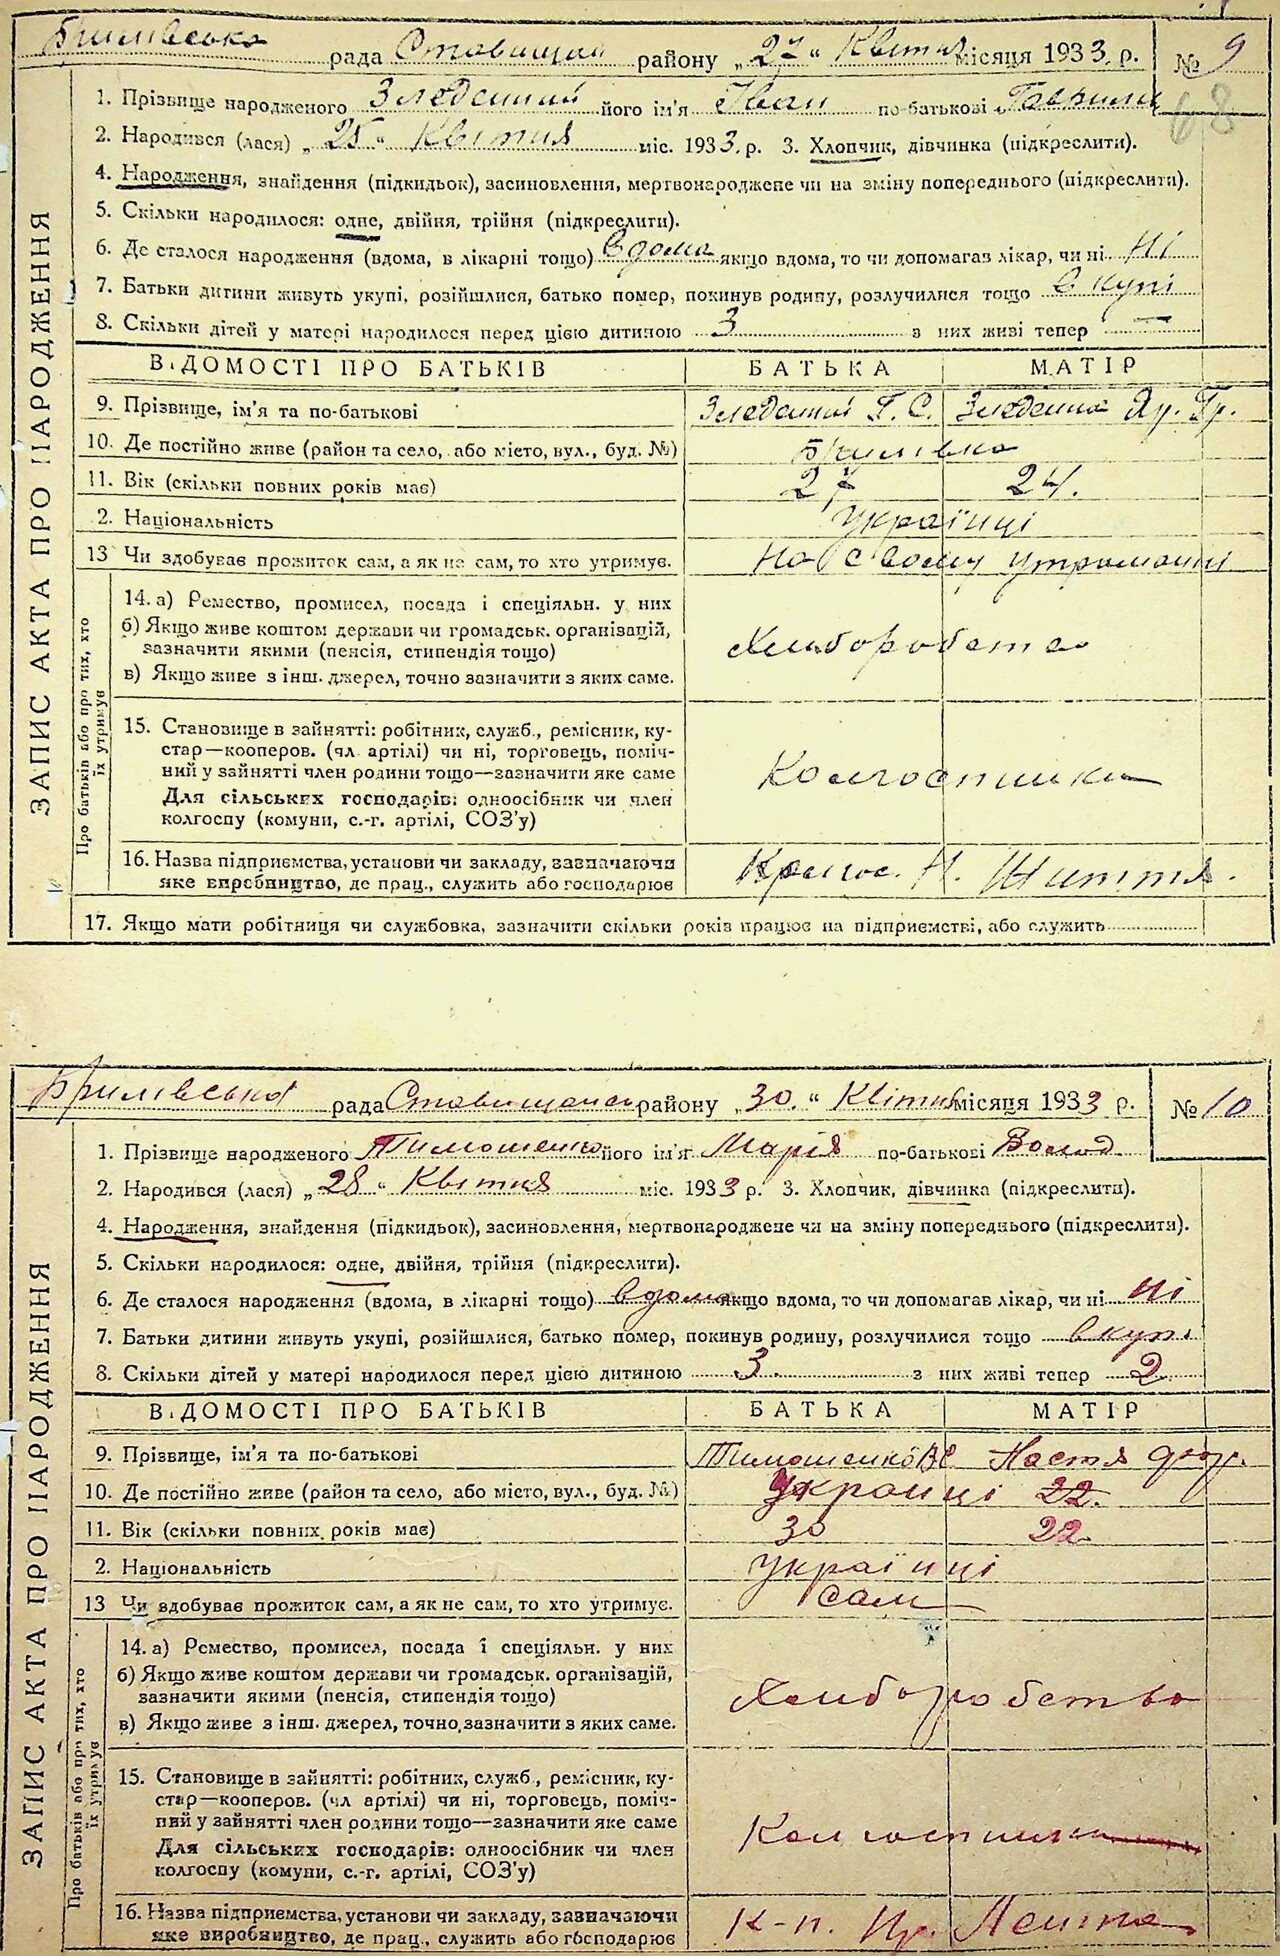 Брилівська рада Ставищан району „27“ Квітня місяця 1933 р. № 9
68
1. Прізвище народженого Зледенний його ім'я Іван по-батькові Гаврилов
2. Народився (лася) „25“ Квітня міс. 1933 р. 3. Хлопчик, дівчинка (підкреслити).
4. Народження, знайдення (підкидьок), засиновлення, мертвонароджене чи на зміну попереднього (підкреслити).
5. Скільки народилося: одне, двійня, трійня (підкреслити).
6. Де сталося народження (вдома, в лікарні тощо) вдома якщо вдома, то чи допомагав лікар, чи ні ні
7. Батьки дитини живуть укупі, розійшлися, батько помер, покинув родину, розлучилися тощо в купі
8. Скільки дітей у матері народилося перед цією дитиною 3 з них живі тепер —
ЗАПИС АКТА ПРО НАРОДЖЕННЯ
ВІДОМОСТІ ПРО БАТЬКІВ БАТЬКА МАТІР
9. Прізвище, ім'я та по-батькові Зледенний Г. С. Зледенна Яр. Гр.
10. Де постійно живе (район та село, або місто, вул., буд. №) Брилівка
11. Вік (скільки повних років має) 27 24.
2. Національність Українці
13 Чи здобуває прожиток сам, а як не сам, то хто утримує. на своему утриманні
Про батьків або про тих, хто їх утримує
14. а) Ремество, промисел, посада і спеціяльн. у них
б) Якщо живе коштом держави чи громадськ. організацій,
зазначити якими (пенсія, стипендія тощо) Хлиборобство
в) Якщо живе з інш. джерел, точно зазначити з яких саме.
15. Становище в зайнятті: робітник, служб., ремісник, ку-
стар—кооперов. (чл артілі) чи ні, торговець, поміч-
ний у зайнятті член родини тощо—зазначити яке саме Колгоспники
Для сільських господарів: одноосібник чи член
колгоспу (комуни, с.-г. артілі, СОЗ'у)
16. Назва підприємства, установи чи закладу, зазначаючи
яке виробництво, де прац., служить або господарює Н. Життя.
17. Якщо мати робітниця чи службовка, зазначити скільки років працює на підприємстві, або служить
Брилівська рада Ставищанськ району „30.“ Квітня місяця 1933 р. № 10
1. Прізвище народженого Тимошенко його ім'я Марія по-батькові Волод.
2. Народився (лася) „28“ Квітня міс. 1933 р. 3. Хлопчик, дівчинка (підкреслити).
4. Народження, знайдення (підкидьок), засиновлення, мертвонароджене чи на зміну попереднього (підкреслити).
5. Скільки народилося: одне, двійня, трійня (підкреслити).
6. Де сталося народження (вдома, в лікарні тощо) вдома якщо вдома, то чи допомагав лікар, чи ні ні
7. Батьки дитини живуть укупі, розійшлися, батько помер, покинув родину, розлучилися тощо вкупі
8. Скільки дітей у матері народилося перед цією дитиною 3. з них живі тепер 2
ЗАПИС АКТА ПРО НАРОДЖЕННЯ
ВІДОМОСТІ ПРО БАТЬКІВ БАТЬКА МАТІР
9. Прізвище, ім'я та по-батькові Тимошенко В Є Настя
10. Де постійно живе (район та село, або місто, вул., буд. №) Українці 22.
11. Вік (скільки повних років має) 30 22.
2. Національність Українці
13 Чи здобуває прожиток сам, а як не сам, то хто утримує. Сам
Про батьків або про тих, хто їх утримує
14. а) Ремество, промисел, посада і спеціяльн. у них
б) Якщо живе коштом держави чи громадськ. організацій,
зазначити якими (пенсія, стипендія тощо) Хлиборобство
в) Якщо живе з інш. джерел, точно зазначити з яких саме.
15. Становище в зайнятті: робітник, служб., ремісник, ку-
стар—кооперов. (чл артілі) чи ні, торговець, поміч-
ний у зайнятті член родини тощо—зазначити яке саме
Для сільських господарів: одноосібник чи член Колгоспники
колгоспу (комуни, с.-г. артілі, СОЗ'у)
16. Назва підприємства, установи чи закладу, зазначаючи
яке виробництво, де прац., служить або господарює К-п.